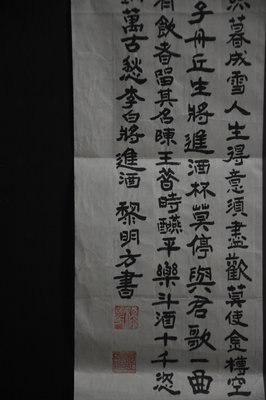 暮成雪人生得意須盡歡莫使金樽空
子丹丘生將進酒杯莫停與君歌一曲
飲者留其名陳王昔時讌平樂斗酒十千恣
萬古愁李白將進酒 黎明方書